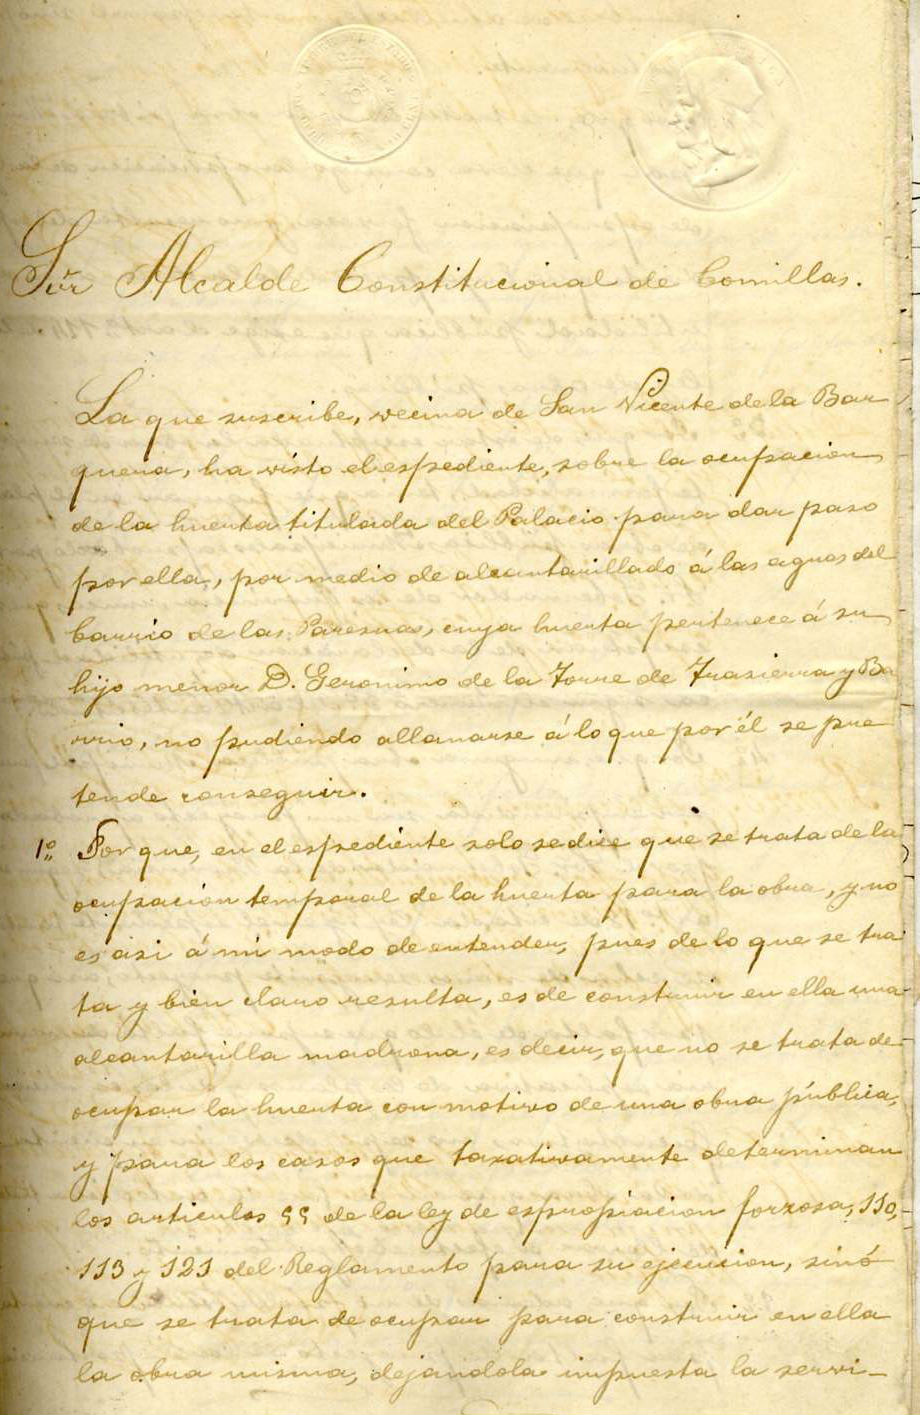 Sor Alcalde Constitucional de Comillas.
La que suscribe, vecina de San Vicente de la Bar
quera, ha visto el espediente, sobre la ocupacion
de la huerta titulada del Palacio para dar paso
por ella, por medio de alcantarillado á las aguas del
barrio de las Paresuas, cuya huerta pertenece á su
hijo menor D. Geronimo de la Torre de Trasierra y Ba
rrio, no pudiendo allanarse á lo que por él se pre
tende conseguir.
1º Por que, en el espediente solo se dice que se trata de la
ocupación temporal de la huerta para la obra, y no
es asi á mi modo de entender, pues de lo que se tra
ta y bien claro resulta, es de construir en ella una
alcantarilla madrona, es decir, que no se trata de
ocupar la huerta con motivo de una obra pública,
y para los casos que taxativamente determinan
los articulos 55 de la ley de espropiacion forzosa, 110,
113 y 121 del Reglamento para su ejecucion, sinó
que se trata de ocupar para construir en ella
la obra misma, dejandola impuesta la servi-